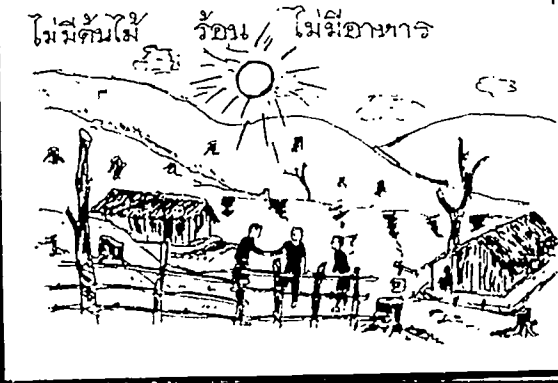 ไม่มีต้นไม้ ร้อน ไม่มีอาหาร